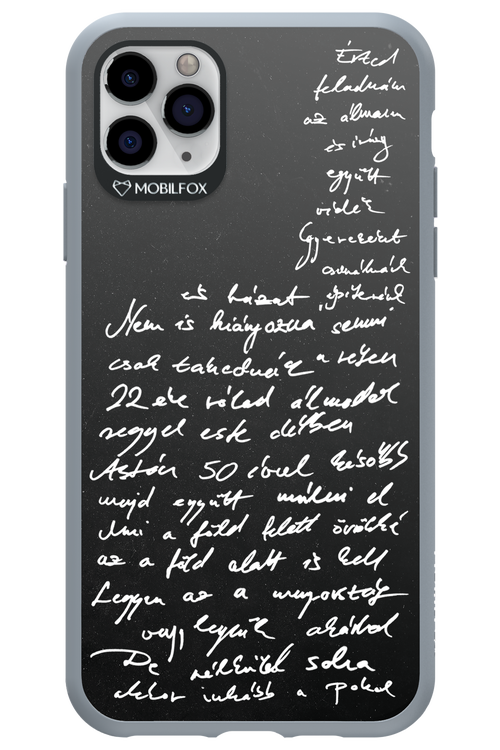 MOBILFOX
Érted
feladnám
az álmaim
és irány
együtt
vidék
Gyereket
csinálnánk
és házat építenénk
Nem is hiányozna semmi
csak takednánk a réten
22 éve rólad álmodok
reggel este délben
Aztán 50 évvel később
majd együtt múlni el
Ami a föld felett örökké
az a föld alatt is kell
Legyen az a mennyország
vagy legyünk akárhol
De nélküled soha
akkor inkább a Pokol